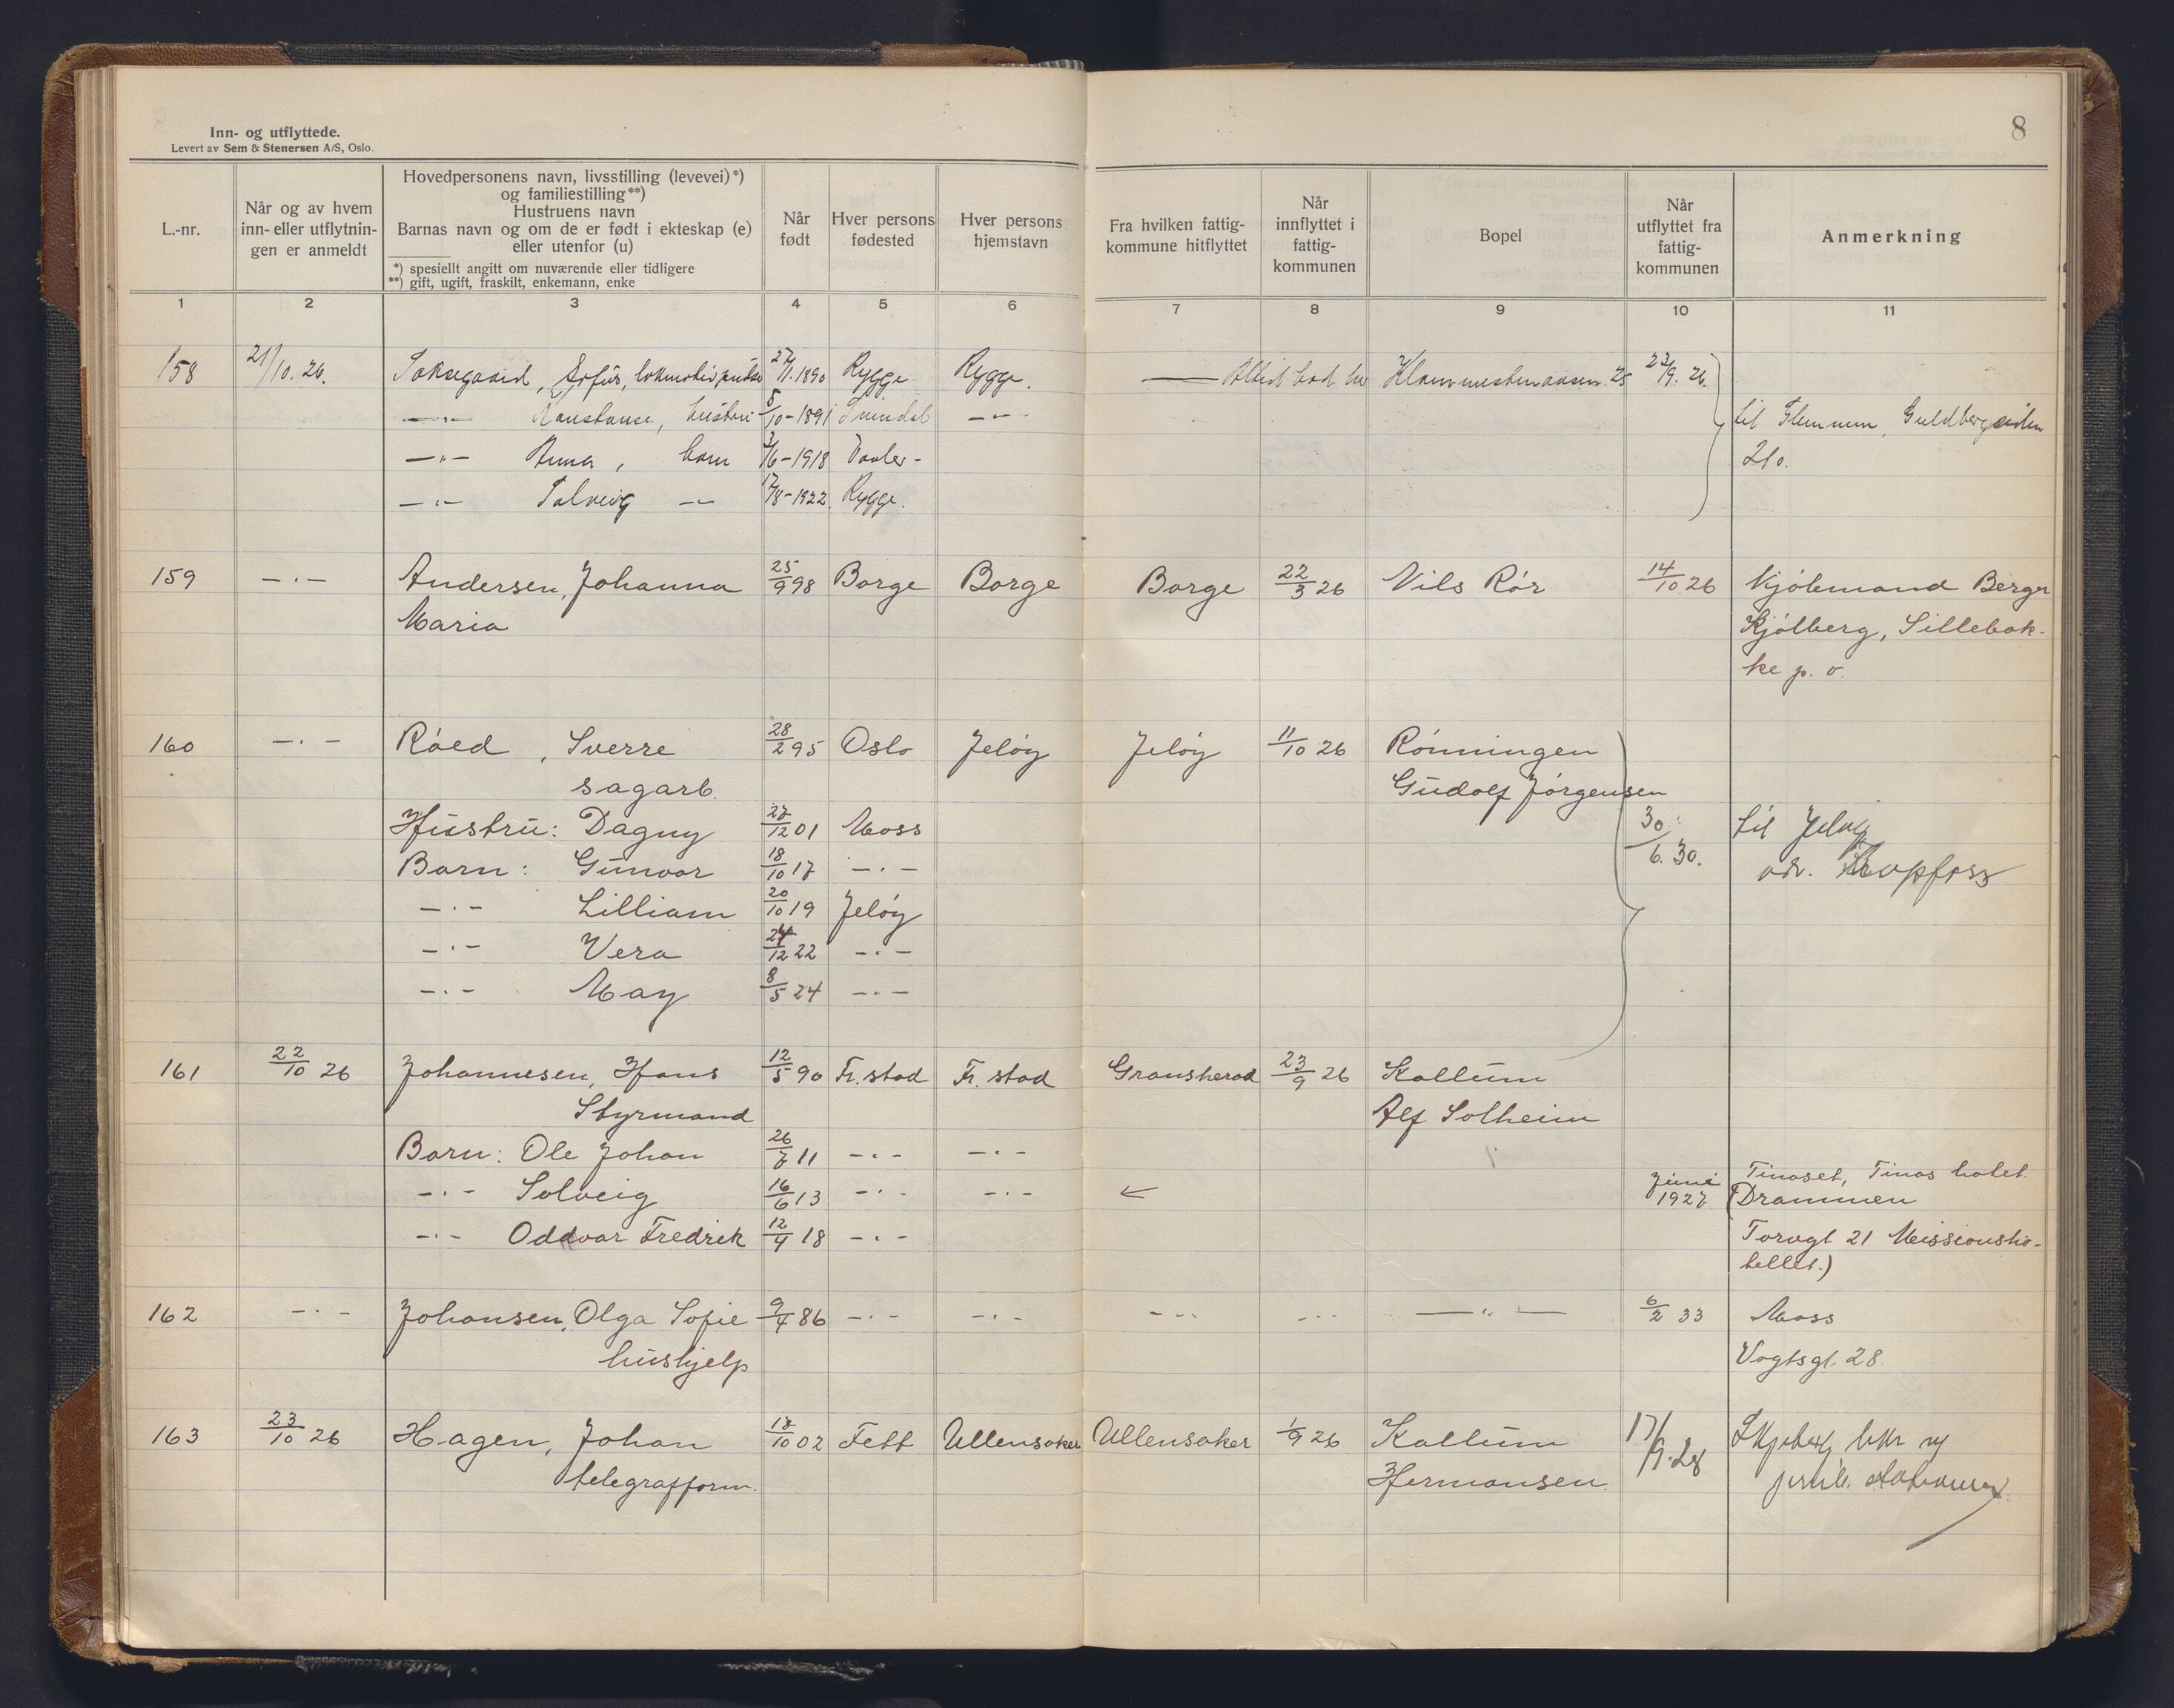 Inn- og utflyttede.
Levert av Sem & Stenersen A/S, Oslo.
8
L.-nr.
Når og av hvem inn- eller utflytnin- gen er anmeldt
Hovedpersonens navn, livsstilling (levevei)*)
og familiestilling**)
Hustruens navn
Barnas navn og om de er født i ekteskap (e)
eller utenfor (u)
*) spesiellt angitt om nuværende eller tidligere
**) gift, ugift, fraskilt, enkemann, enke
Når født
Hver persons fødested
Hver persons hjemstavn
Fra hvilken fattig- kommune hitflyttet
Når innflyttet i fattig- kommunen
Bopel
Når utflyttet fra fattig- kommunen
Anmerkning
1 2 3 4 5 6 7 8 9 10 11
158 21/10.26. 27/1.1890 Rygge Rygge. 23/9.26.
—"— hustru 5/10-1891 —"—
—"— Anna, barn 3/6-1918 Vaaler- til Glemmen,
—"— Solveig —"— 17/8-1922. Rygge. 21o.
159 —"— Andersen, Johanna 25/9 98 Borge Borge Borge 22/3 26 Nils Rör 14/10 26 Kjøbmand Berger
Maria Kjølberg, Sillebok-
ke p. o.
160 —"— Röed, Sverre 28/2 95 Oslo Jeløy Jeløy 11/10 26 Rönningen
sagarb. Gudolf Jörgensen
Hustru: Dagny 27/12 01 Moss 30/6.30. til Jeløy
Barn: Gunvor 18/10 17 —"—
—"— Lilliam 20/10 19 Jeløy
—"— Vera 24/12 22 —"—
—"— May 8/5 24 —"—
161 22/10 26 Johannesen, Hans 12/5 90 Fr.stad Fr.stad Gransherad 23/9 26 Kallum
Styrmand Alf Solheim
Barn: Ole Johan 26/7 11 —"— —"—
—"— Solveig 16/6 13 —"— —"— juni 1927 Tinoset, Tinos hotel.
(Drammen
—"— Oddvar Fredrik 12/4 18 —"— Torvgt 21 Missionsho-
tellet.)
162 —"— Johansen, Olga Sofie 9/4 86 —"— —"— —"— —"— —"— 6/2 33 Moss
hushjelp Vogtsgt. 28.
163 23/10 26 Hagen, Johan 17/10 02 Fett Ullensaker Ullensaker 1/9 26 Kallum 17/9.28
telegrafform. Hermansen.